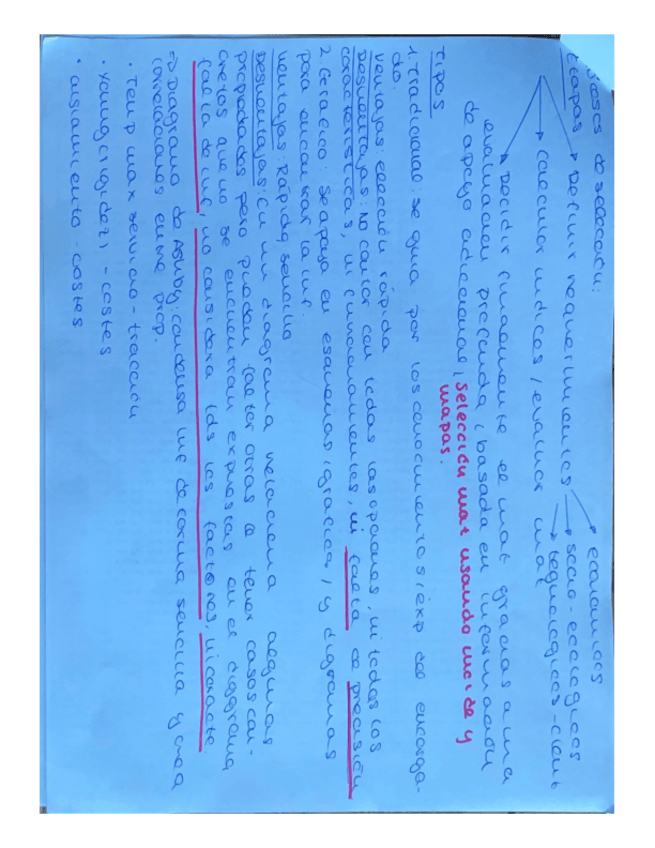 Bases de selección:
Etapas
Definir requerimientos
económicos
socio-ecológicos
tecnológicos-cient
calcular indices / evaluar mat
Decidir finalmente el mat gracias a una
evaluación profunda (basada en información
de apoyo adicional, selección mat usando índice y
mapas.
Tipos
1. Tradicional: se guia por los conocimientos/exp del encarga-
do.
Ventajas: elección rápida
Desventajas: No contar con todas las opciones, ni todas las
características, ni funcionamientos, ni falta de precisión
2. Gráfico: se apoya en esquemas (gráfica, y diagramas
para encauzar la inf.
Ventajas: Rápida, sencilla
Desventajas: en un diagrama relaciona algunas
propiedades pero pueden faltar otras o tener casos con-
cretos que no se encuentran expresas en el diagrama
falta de inf, no considera tds los factores, ni caracte
=> Diagrama de Ashby: condensa inf de forma sencilla y crea
correlaciones entre prop.
· Temp max servicio - tracción
· Young (rigidez) - costes
· aislamiento - costes